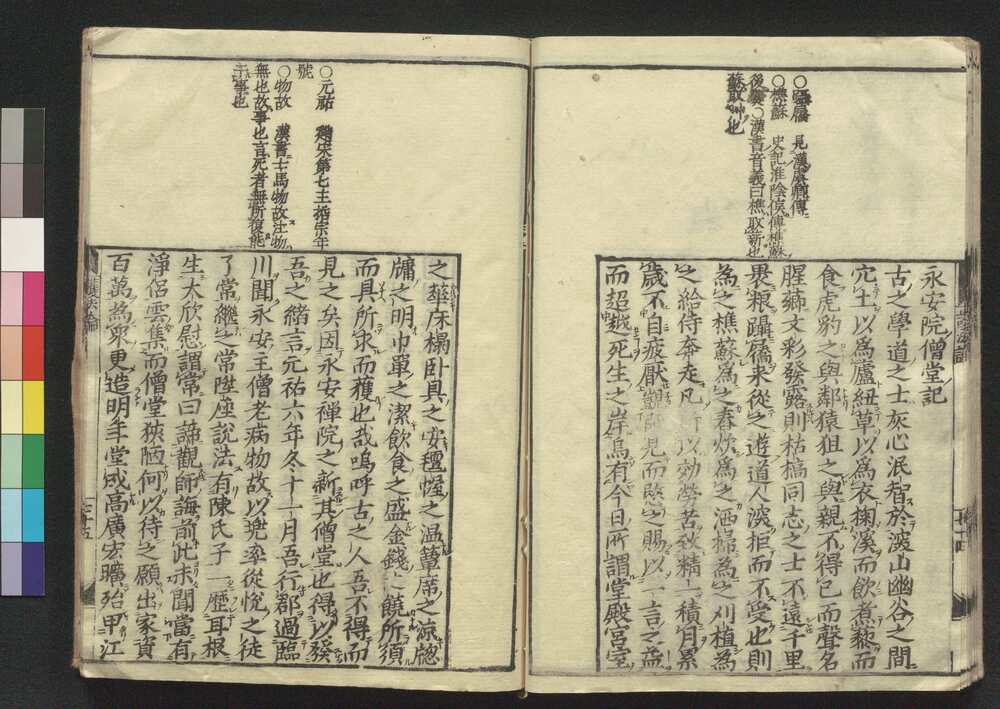 ○躡屩 見漢虞卿傳
○樵蘇 史記淮陰侯傳樵蘇
後爨○漢書音義曰樵取薪也
蘇取艸也
永安院僧堂記
古之學道之士灰心泯智於深山幽谷之間
穴土以爲廬紐草以爲衣掬溪而飲煮藜而
食虎豹之與鄰猿狙之與親不得已而聲名
腥薌文彩發露則枯槁同志之士不遠千里
裹粮躡屩来從之遊道人深拒而不受也則
為之樵蘇為之舂炊為之洒掃為之刈植為
之給侍奔走凡所以効勞苦致精一積月累
歳不自疲厭觀師見而愍之賜以一言之益
而超越死生之岸烏有今日所謂堂殿宮室
○元祐 趙宋第七主哲宗年
號
○物故 漢書士馬物故注物
無也故事也言死者無所復能
于事也
之華床榻臥具之安氊幄之温簟席之涼窓
牖之明巾單之潔飲食之盛金錢之饒所須
而具所求而獲也哉嗚呼古之人吾不得而
見之矣因永安禅院之新其僧堂也得以發
吾之緒言元祐六年冬十一月吾行郡過臨
川聞永安主僧老病物故以兜率從悅之徒
了常繼之常陞座說法有陳氏子一歴耳根
生大欣慰謂常曰諦觀師誨前此未聞當有
淨侶雲集而僧堂狹陋何以待之願出家資
百萬為衆更造明年堂成高廣宏曠殆甲江